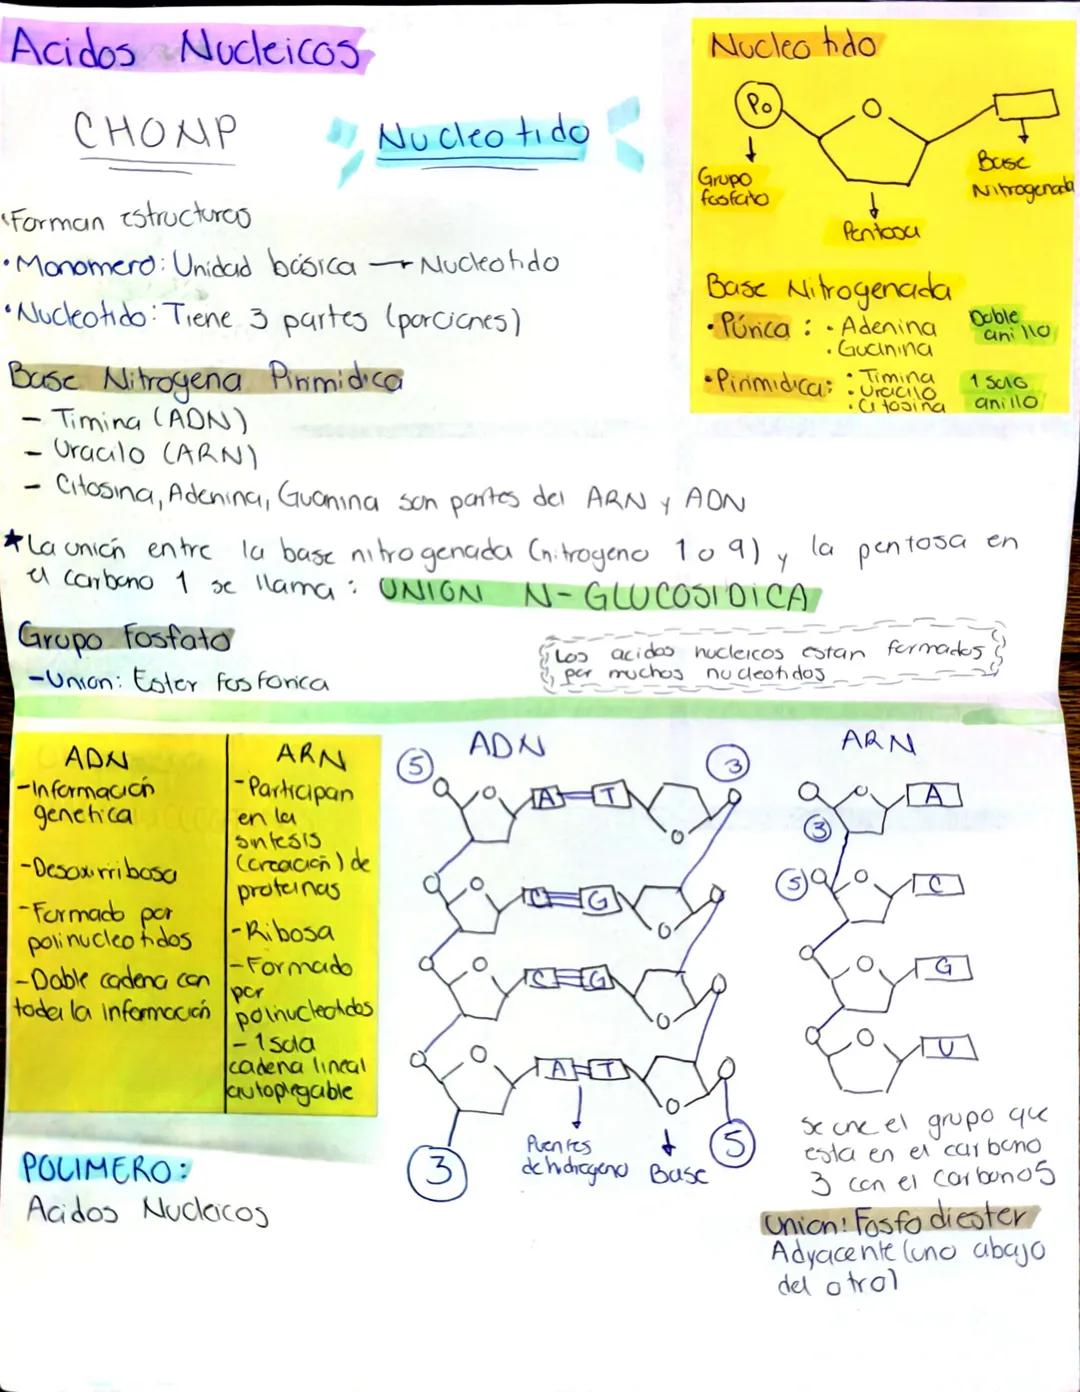 Acidos Nucleicos
CHONP
Nucleotido
•Forman estructuras
•Monomero: Unidad básica → Nucleotido
•Nucleotido: Tiene 3 partes (porciones)
Base Nitrogena Pirimidica
- Timina (ADN)
- Uracilo (ARN)
- Citosina, Adenina, Guanina son partes del ARN y ADN
★La unión entre la base nitrogenada (nitrogeno 1 o 9) y la pentosa en
el carbono 1 se llama: UNION N-GLUCOSIDICA
Grupo Fosfato
-Union: Ester fosforica
Los acidos nucleicos estan formados
por muchos nucleotidos
Nucleotido
Po
O
Grupo
fosfato
Pentosa
Base
Nitrogenada
Base Nitrogenada
•Púrica: •Adenina
•Guanina
Doble
anillo
•Pirimidica: •Timina
•Uracilo
•Citosina
1 solo
anillo
ADN
-Información
genetica
-Desoxirribosa
-Formado por
polinucleotidos
-Doble cadena con
toda la información
ARN
-Participan
en la
sintesis
(creación) de
proteinas
-Ribosa
-Formado
por
polinucleotidos
-1 sola
cadena lineal
autoplegable
POLIMERO:
Acidos Nucleicos
ADN
5
3
A T
C G
C G
A T
3
5
Puentes
de hidrogeno
Base
ARN
A
3
5
C
G
U
Se une el grupo que
esta en el carbono
3 con el carbono 5
Union: Fosfodiester
Adyacente (uno abajo
del otro)